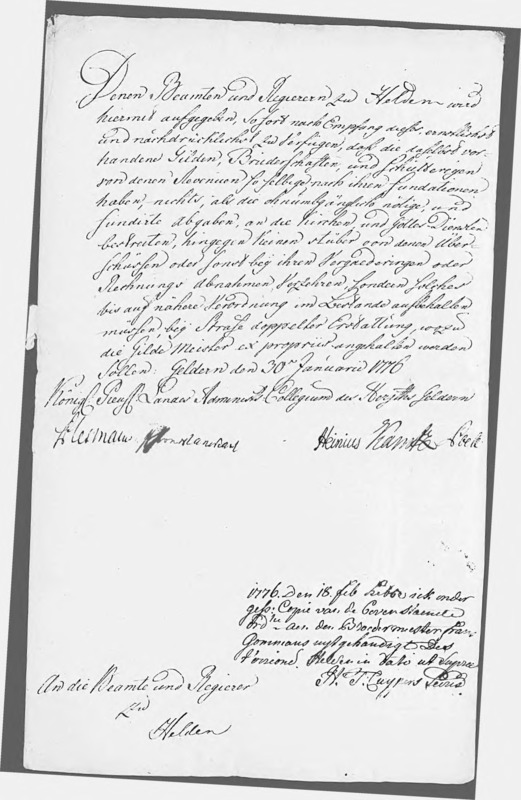 Denen Beamten und Regierern zu Helden wird
hiermit aufgegeben, Sofort nach Empfang dieses ernstlichst
und nachdrücklichst zu verfügen, daß die daselbst vor-
handene Gilden, Bruderschafften und Schüttereyen
von denen Revenuen so selbige nach ihren Fundationen
haben, nichts, als die ohnumgänglich nötige, und
fundirte Abgaben, an die Kirchen und Gottes Diensten
bestreiten, hingegen keinen Stüber von denen Über-
schüssen oder sonst bey ihren Vergaederingen oder
Rechnungs abnahmen verzehren, sondern solches
bis auf nähere Verordnung in Bestande aufbehalten
müssen, bey Strafe doppelter Erstattung, wozu
die Gilde Meister ex propriis angehalten werden
sollen. Geldern den 30n Januarii 1776
Königl. Preuß. Landes Administ. Collegium des Herzths Geldern
Heinius
1776. Den 18 feb hebbe ick onder
gess. Copie van de bovenstaende
Ord. aen den Broedermeester fran.
uytgehandigt. Des
Helden in dato ut supra
H. T. Cuypers
An die Beamte und Regierer
zu
Helden